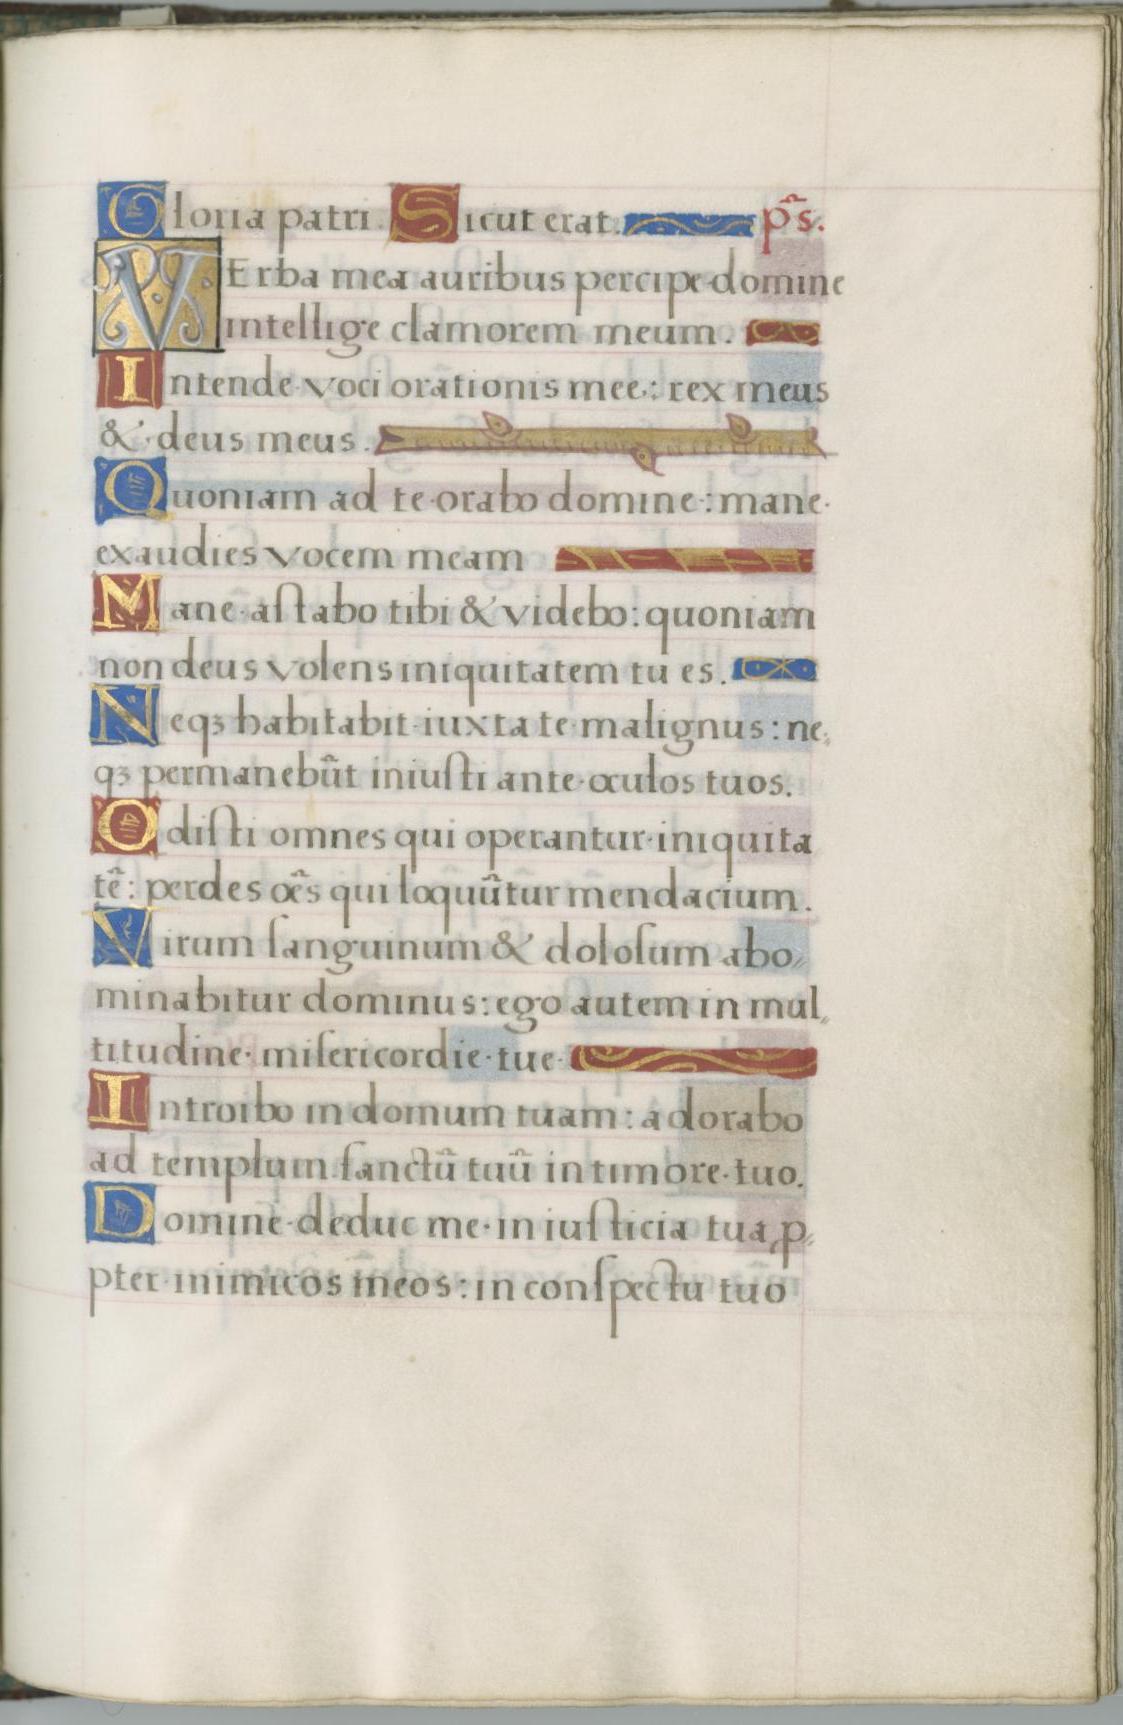 Gloria patri. Sicut erat. p̃s.
VErba mea auribus percipe domine
intellige clamorem meum.
Intende voci orationis mee: rex meus
& deus meus.
Quoniam ad te orabo domine: mane
exaudies vocem meam
Mane aſtabo tibi & videbo: quoniam
non deus volens iniquitatem tu es.
Neqꝫ habitabit iuxta te malignus: ne
qꝫ permanebũt iniuſti ante oculos tuos.
Odiſti omnes qui operantur iniquita
tẽ: perdes oẽs qui loquũtur mendacium.
Virum ſanguinum & doloſum abo
minabitur dominus: ego autem in mul
titudine miſericordie tue
Introibo in domum tuam: adorabo
ad templum ſanctũ tuũ in timore tuo.
Domine deduc me in iuſticia tua ꝓ
pter inimicos meos: in conſpectu tuo